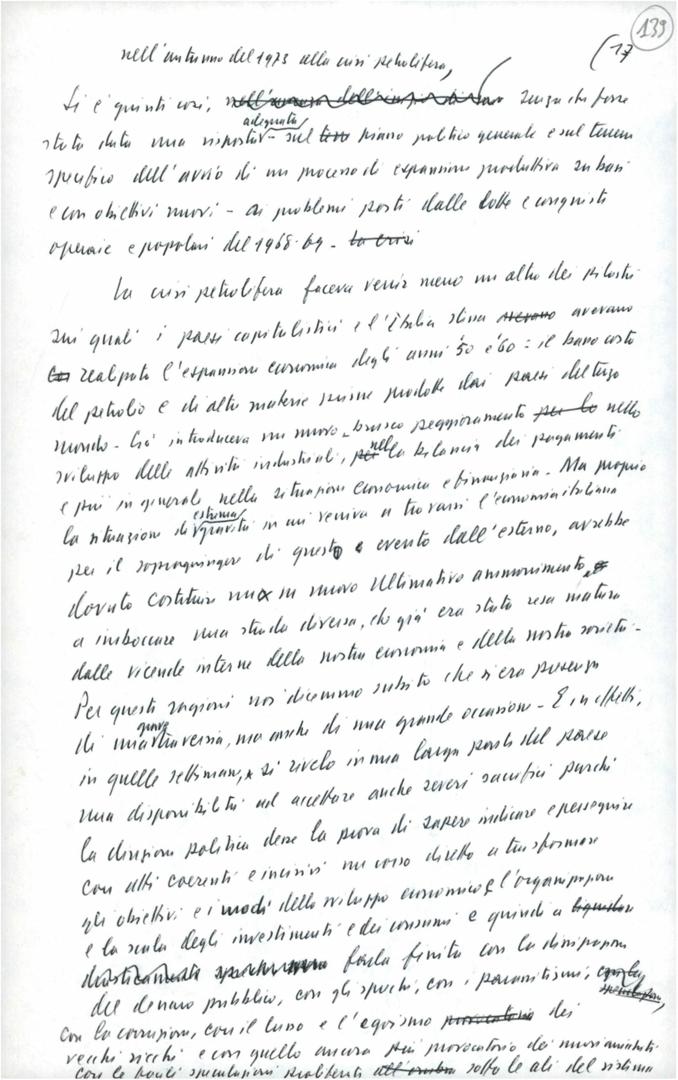 139
(17
nell'autunno del 1973 alla crisi petrolifera,
Si è giunti così, senza che fosse
adeguata
stata data una risposta - sul piano politico generale e sul terreno
specifico dell'avvio di un processo di espansione produttiva su basi
e con obiettivi nuovi - ai problemi posti dalle lotte e conquiste
operaie e popolari del 1968-69. La crisi
La crisi petrolifera faceva venir meno un altro dei pilastri
sui quali i paesi capitalistici e l'Italia stessa avevano avevano
realizzato l'espansione economica degli anni '50 e '60: il basso costo
del petrolio e di altre materie prime prodotte dai paesi del terzo
mondo. Ciò introduceva un nuovo, brusco peggioramento per lo nello
sviluppo delle attività industriali, nella bilancia dei pagamenti
e più in generale nella situazione economica e finanziaria. Ma proprio
estrema
la situazione di gravità in cui veniva a trovarsi l'economia italiana
per il sopraggiungere di questo evento dall'esterno, avrebbe
dovuto costituire un nuovo ultimativo ammonimento
a imboccare una strada diversa, che già era stata resa matura
dalle vicende interne della nostra economia e della nostra società.
Per questi ragioni noi dicemmo subito che si era in presenza
grave
di una traversia, ma anche di una grande occasione. E in effetti,
in quelle settimane, si rivelò in una larga parte del paese
una disponibilità ad accettare anche severi sacrifici purché
la direzione politica desse la prova di sapere indicare e perseguire
con atti coerenti e incisivi un corso diretto a trasformare
gli obiettivi e i modi dello sviluppo economico e l'organizzazione
e la scala degli investimenti e dei consumi e quindi a liquidare
drasticamente farla finita con la dissipazione
del denaro pubblico, con gli sprechi, con i parassitismi, con la
speculazione,
con la corruzione, con il lusso e l'egoismo provocatorio dei
vecchi ricchi e con quello ancora più provocatorio dei nuovi arricchiti
con le facili speculazioni proliferate all'ombra sotto le ali del sistema